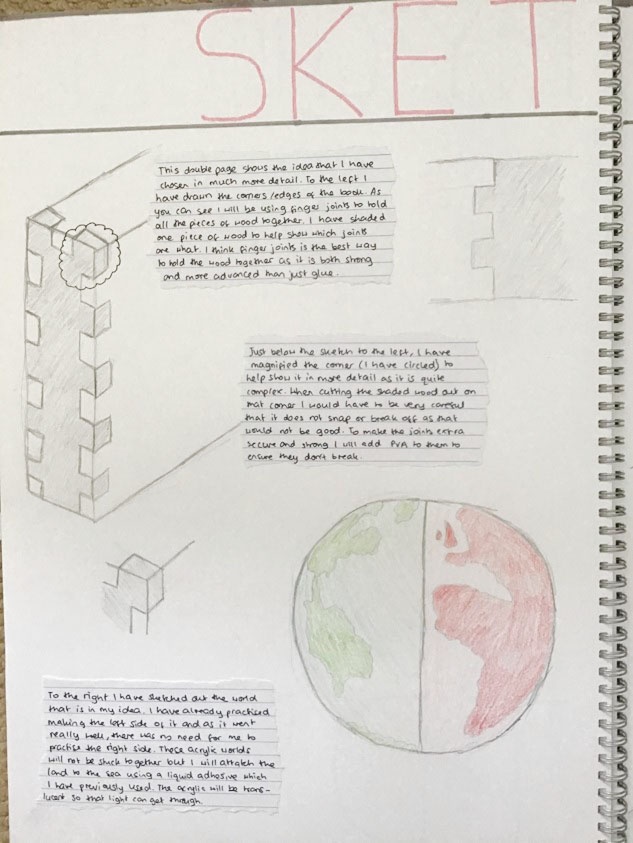 SKET
This double page shows the idea that I have
chosen in much more detail. To the left I
have drawn the corners/edges of the book. As
you can see I will be using finger joints to hold
all the pieces of wood together. I have shaded
one piece of wood to help show which joints
are what. I think finger joints is the best way
to hold the wood together as it is both strong
and more advanced than just glue.
Just below the sketch to the left, I have
magnified the corner (I have circled) to
help show it in more detail as it is quite
complex. When cutting the shaded wood out on
that corner I would have to be very careful
that it does not snap or break off as that
would not be good. To make the joints extra
secure and strong I will add PVA to them to
ensure they don't break.
To the right I have sketched out the world
that is in my idea. I have already practised
making the left side of it and as it went
really well, there was no need for me to
practise the right side. These acrylic worlds
will not be stuck together but I will attatch the
land to the sea using a liquid adhesive which
I have previously used. The acrylic will be trans-
lucent so that light can get through.